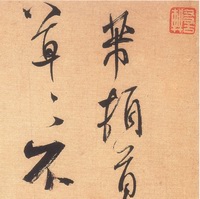 芾頓首
草〻不